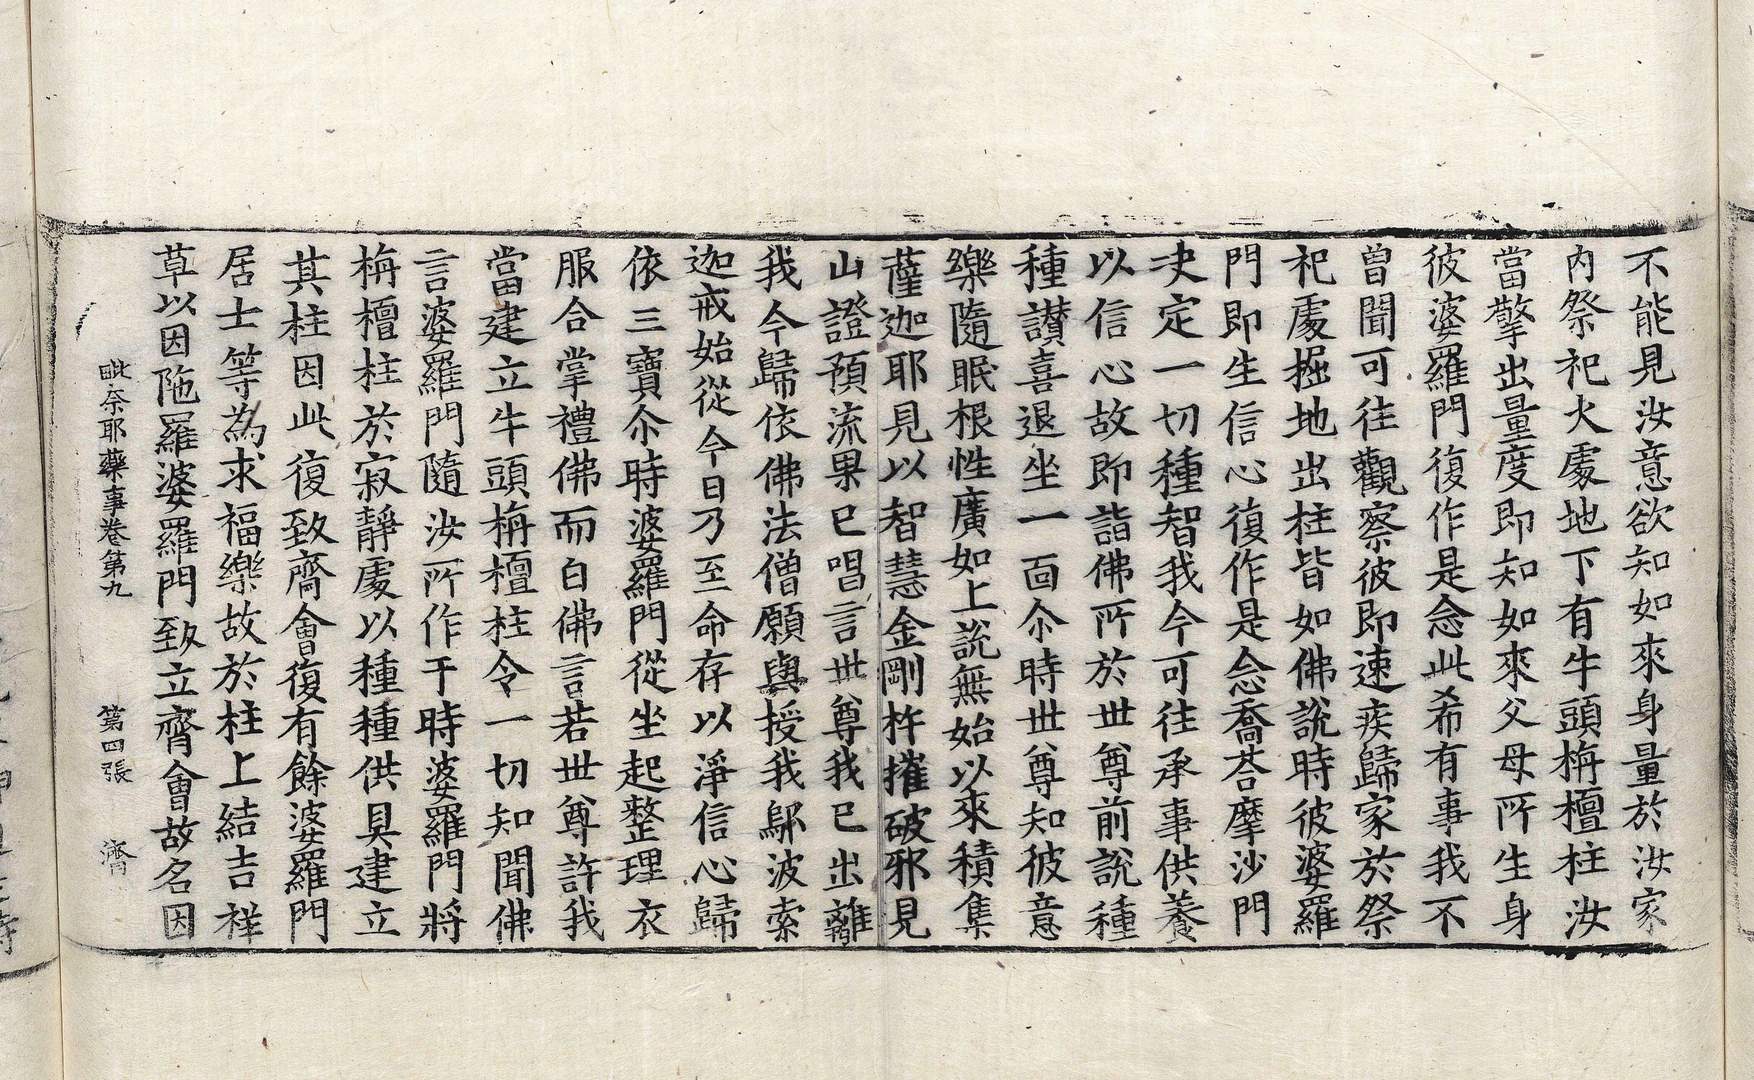 不能見汝意欲知如來身量於汝家
內祭祀火處地下有牛頭栴檀柱汝
當擎出量度即知如來父母所生身
彼婆羅門復作是念此希有事我不
曾聞可往觀察彼即速疾歸家於祭
祀處掘地出柱皆如佛說時彼婆羅
門即生信心復作是念喬荅摩沙門
决定一切種智我今可往承事供養
以信心故即詣佛所於世尊前說種
種讃喜退坐一面尒時世尊知彼意
樂隨眠根性廣如上說無始以來積集
薩迦耶見以智慧金剛杵摧破邪見
山證預流果已唱言世尊我已出離
我今歸依佛法僧願與授我鄔波索
迦戒始從今日乃至命存以淨信心歸
依三寶尒時婆羅門從坐起整理衣
服合掌禮佛而白佛言若世尊許我
當建立牛頭栴檀柱令一切知聞佛
言婆羅門隨汝所作于時婆羅門將
栴檀柱於寂靜處以種種供具建立
其柱因此復致齋會復有餘婆羅門
居士等為求福樂故於柱上結吉祥
草以因陁羅婆羅門致立齋會故名因
毗奈耶藥事卷第九 第四張 濟